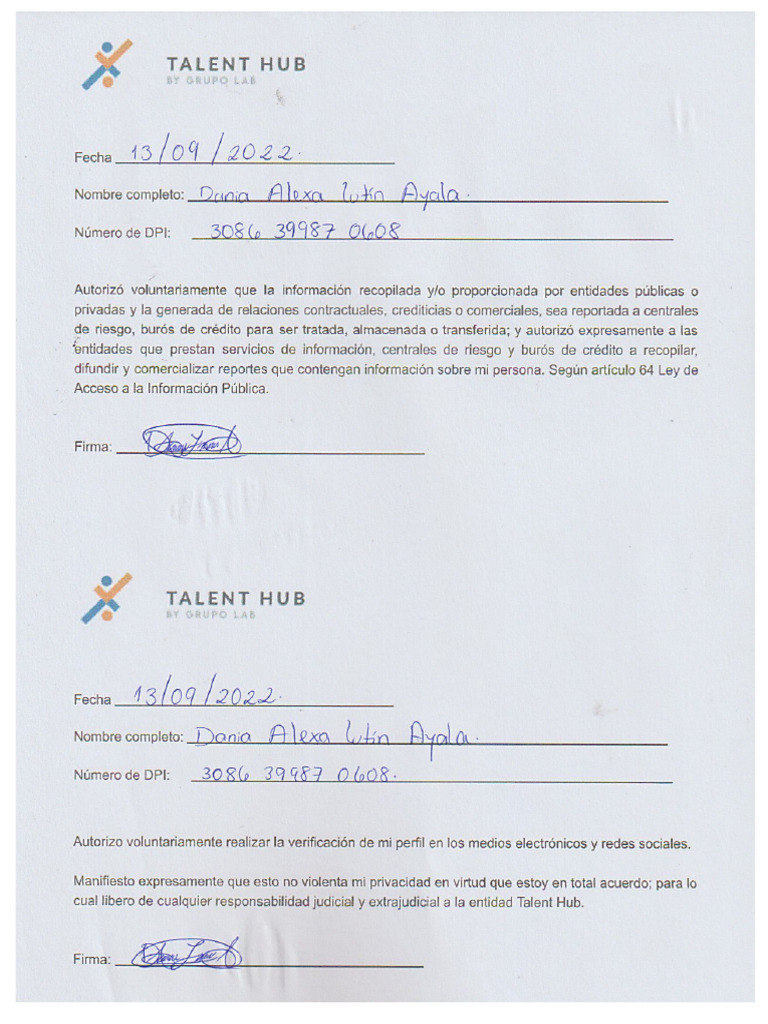 TALENT HUB
BY GRUPO LAB
Fecha 13/09/2022.
Nombre completo: Dania Alexa Lutín Ayala.
Número de DPI: 3086 39987 0608
Autorizó voluntariamente que la información recopilada y/o proporcionada por entidades públicas o
privadas y la generada de relaciones contractuales, crediticias o comerciales, sea reportada a centrales
de riesgo, burós de crédito para ser tratada, almacenada o transferida; y autorizó expresamente a las
entidades que prestan servicios de información, centrales de riesgo y burós de crédito a recopilar,
difundir y comercializar reportes que contengan información sobre mi persona. Según artículo 64 Ley de
Acceso a la Información Pública.
Firma:
TALENT HUB
BY GRUPO LAB
Fecha 13/09/2022.
Nombre completo: Dania Alexa Lutín Ayala.
Número de DPI: 3086 39987 0608.
Autorizo voluntariamente realizar la verificación de mi perfil en los medios electrónicos y redes sociales.
Manifiesto expresamente que esto no violenta mi privacidad en virtud que estoy en total acuerdo; para lo
cual libero de cualquier responsabilidad judicial y extrajudicial a la entidad Talent Hub.
Firma: